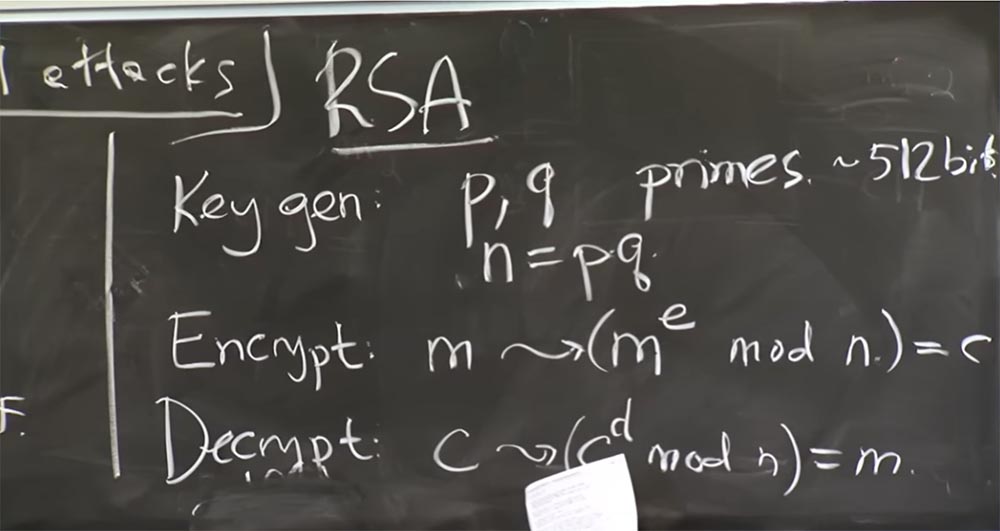 attacks
RSA
Key gen: p, q primes. ~512 bit
n = pq.
Encrypt: m ⇝ (m^e mod n.) = c
F.
Decrypt: c ⇝ (c^d mod n) = m.